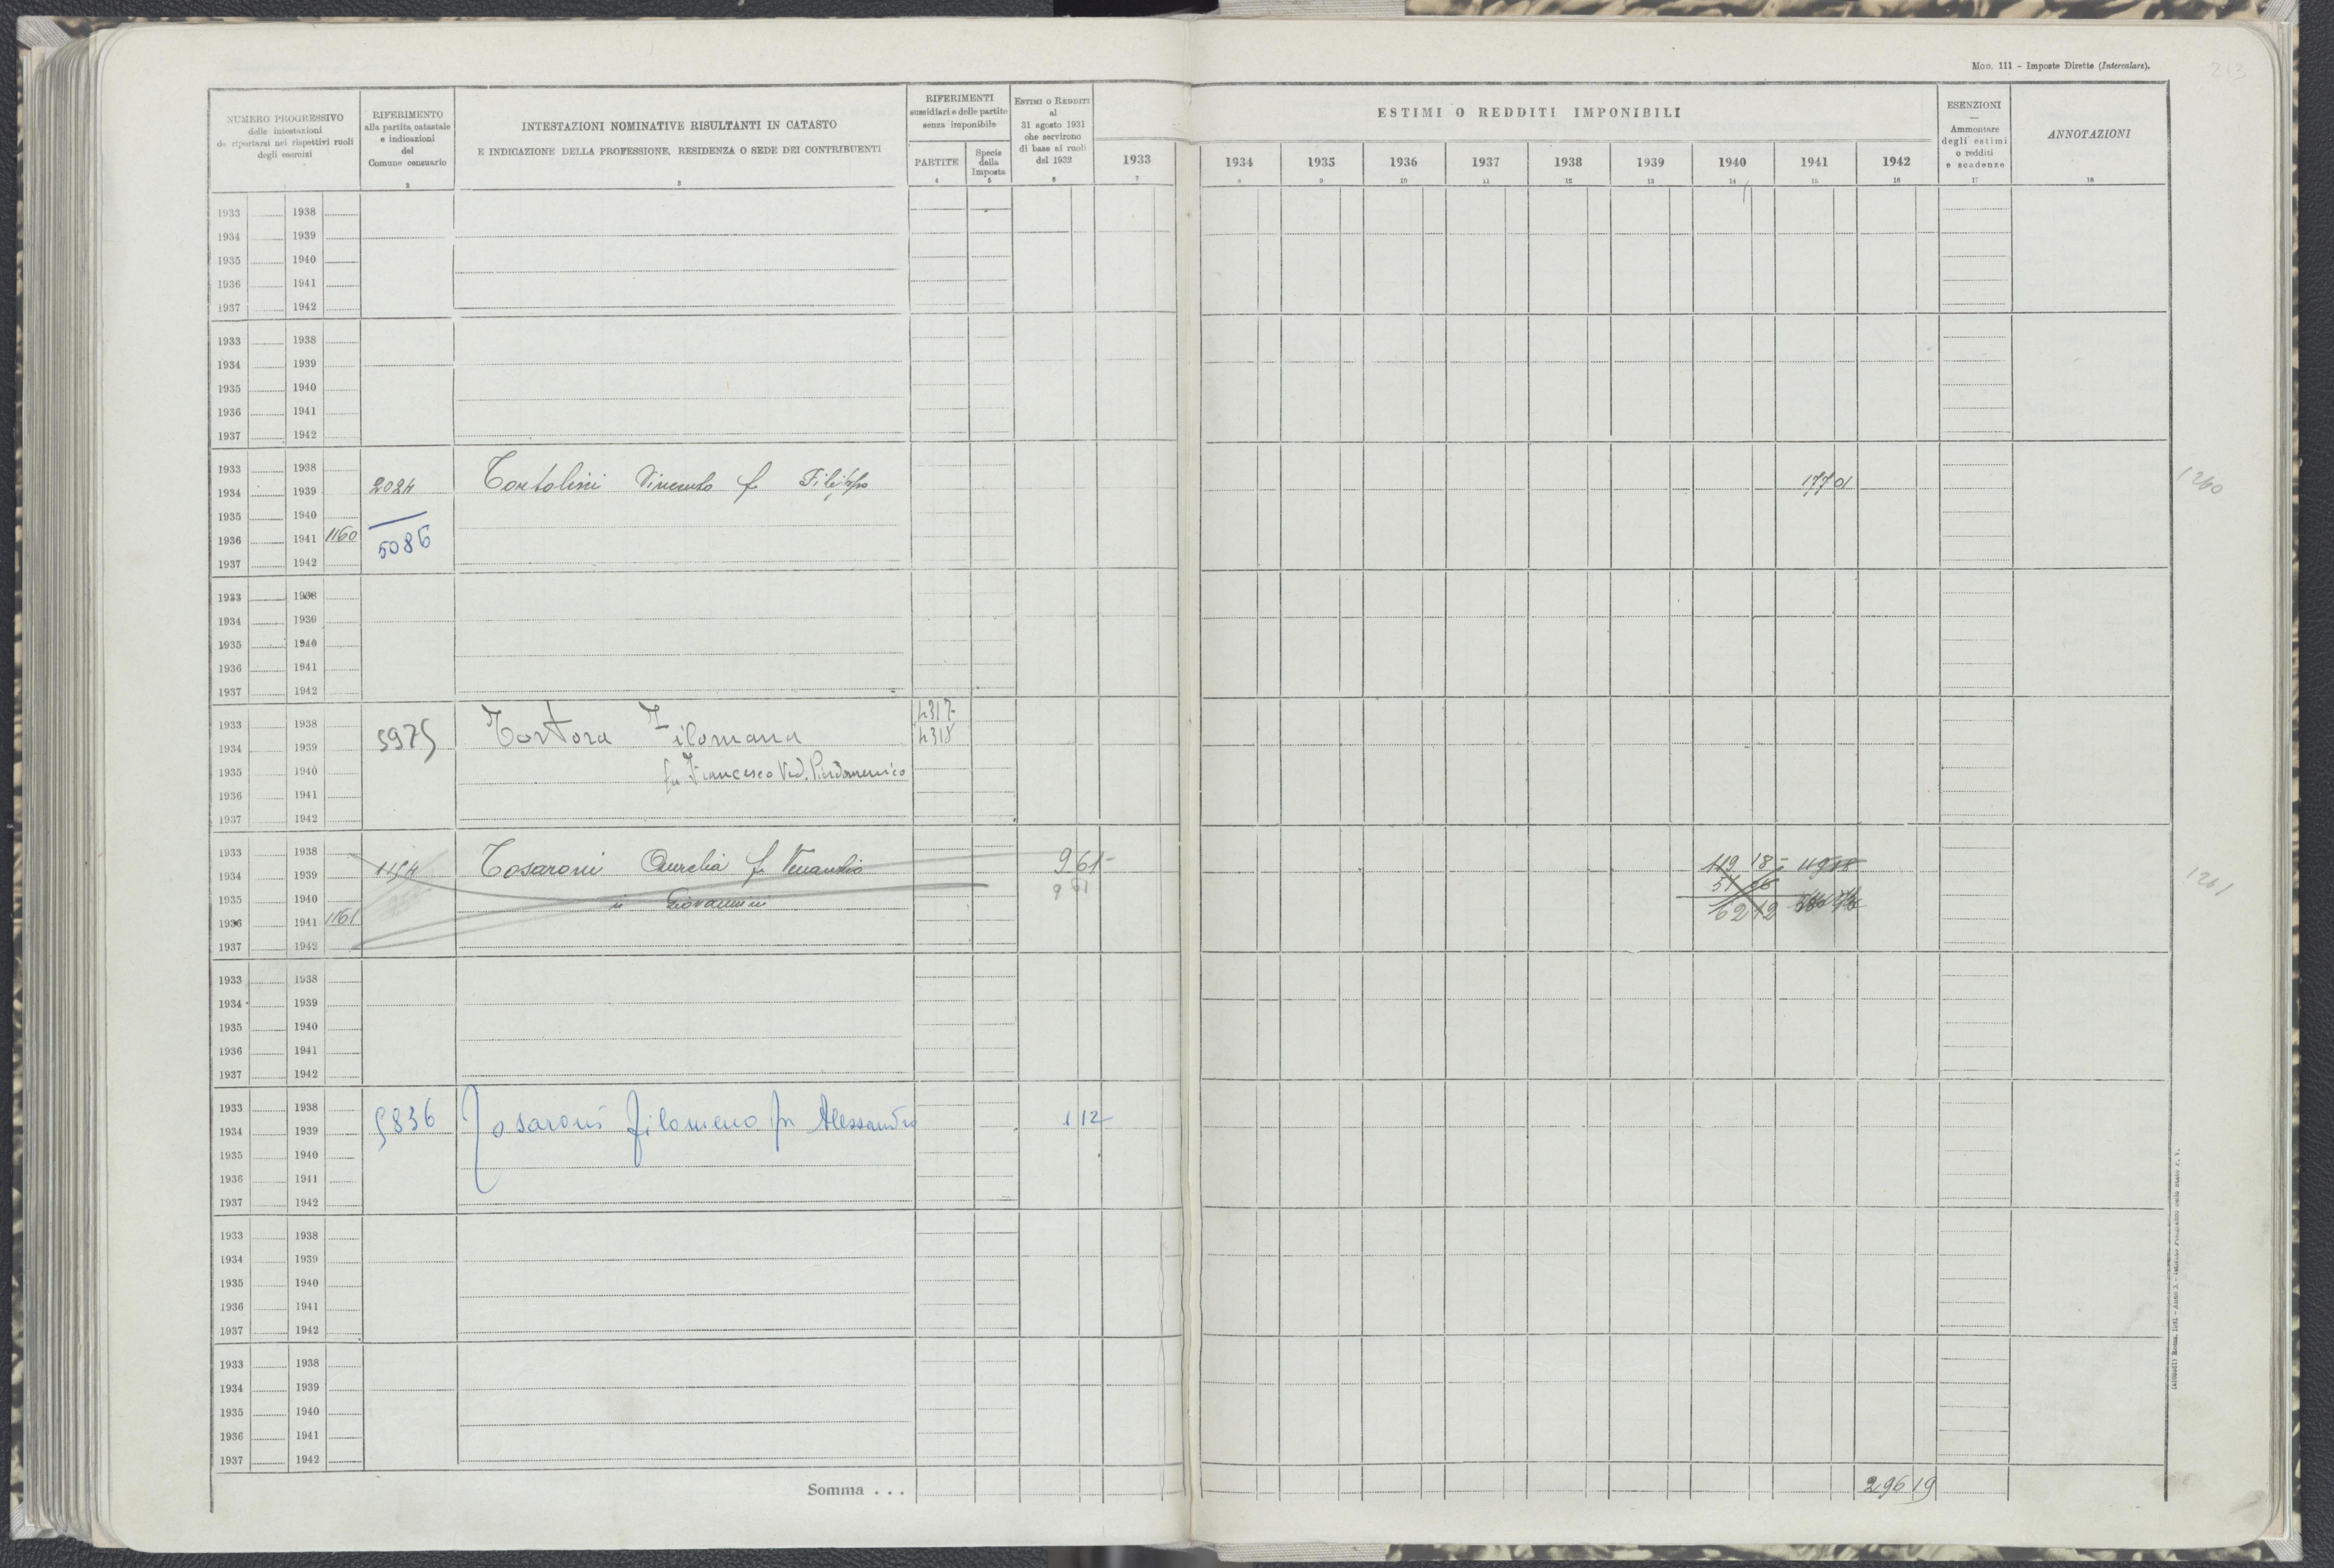 Mod. 111 - Imposte Dirette (Intercalare).
213
NUMERO PROGRESSIVO
delle intestazioni
da riportarsi nei rispettivi ruoli
degli esercizi
RIFERIMENTO
alla partita catastale
e indicazioni
del
Comune censuario
2
INTESTAZIONI NOMINATIVE RISULTANTI IN CATASTO
E INDICAZIONE DELLA PROFESSIONE, RESIDENZA O SEDE DEI CONTRIBUENTI
3
RIFERIMENTI
sussidiari e delle partite
senza imponibile
PARTITE
4
Specie
della
Imposta
5
ESTIMI O REDDITI
al
31 agosto 1931
che servirono
di base ai ruoli
del 1932
6
1933
7
ESTIMI O REDDITI IMPONIBILI
1934 1935 1936 1937 1938 1939 1940 1941 1942
8 9 10 11 12 13 14 15 16
ESENZIONI
Ammontare
degli estimi
o redditi
e scadenze
17
ANNOTAZIONI
18
1933 1938
1934 1939
1935 1940
1936 1941
1937 1942
1933 1938
1934 1939
1935 1940
1936 1941
1937 1942
1933 1938
1934 1939 2024 Tortolini Vincenzo fu Filippo 17701 1260
1935 1940
1936 1941 1160 5086
1937 1942
1933 1938
1934 1939
1935 1940
1936 1941
1937 1942
1933 1938 4317
1934 1939 5975 Tortora Filomena 4318
1935 1940 fu Francesco Ved. Pierdomenico
1936 1941
1937 1942
1933 1938
1934 1939 1154 Tosaroni Aurelia fu Venanzio 961 419 18 1261
1935 1940 in Giovannini 961
1936 1941 1161 6212
1937 1942
1933 1938
1934 1939
1935 1940
1936 1941
1937 1942
1933 1938
1934 1939 5836 Tosaroni Filomeno fu Alessandro 112
1935 1940
1936 1941
1937 1942
1933 1938
1934 1939
1935 1940
1936 1941
1937 1942
1933 1938
1934 1939
1935 1940
1936 1941
1937 1942
Somma . . . 29619